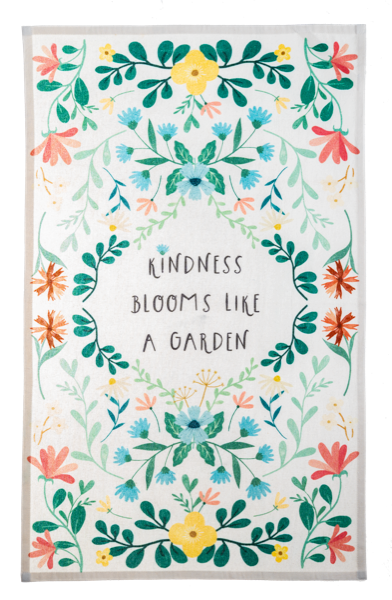 KINDNESS
BLOOMS LIKE
A GARDEN